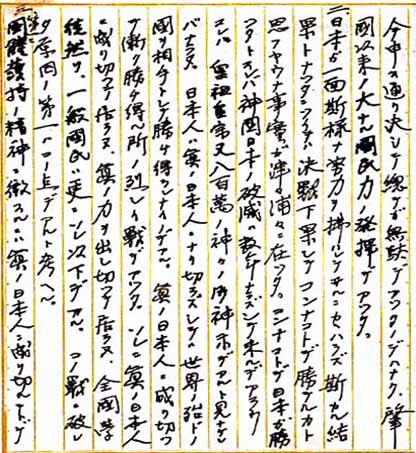 今申シ通リ決シテ總テガ無駄デアツタノデハナク、肇
國以來ノ大ナル國民力ノ發揮デアツタ。
二、日本ガ一面斯様ナ努力ヲ拂ハレ 斯カル結
果トナツタノデアル、決戰下果シテコンナコトデ勝テルカト
思フヤウナ事ガ實ニ津々浦々ニ在ツタ。コンナコトデ日本ガ勝
ツタトスレバ神国日本ノ破滅ハ數年ナラズシテ来ルデアラウ
コレハ皇祖皇宗又八百萬ノ神々ノ御神示デアルト見ナケレ
バナラヌ 日本人ハ眞ノ日本人ニナリ切ラズシテハ世界ノ殆ドノ
國ヲ相手トシテ勝チ得ラレナイノデアル。眞ノ日本人ニ成リ切ツ
テ漸ク勝チ得ル所ノ烈シイ戰デアツタ。ソレニ眞ノ日本人
ニ成リ切ツテ居ラヌ、眞ノ力ヲ出シ切ツテ居ラヌ、全國學
徒然リ、一般國民ハ更ニソレ以下デアル。コノ戰ニ敗レ
タ原因ノ第一ハコノ点デアルト考ヘル。
三、國體護持ノ精神ニ徹スルニハ眞ノ日本人ニ成リ切ル